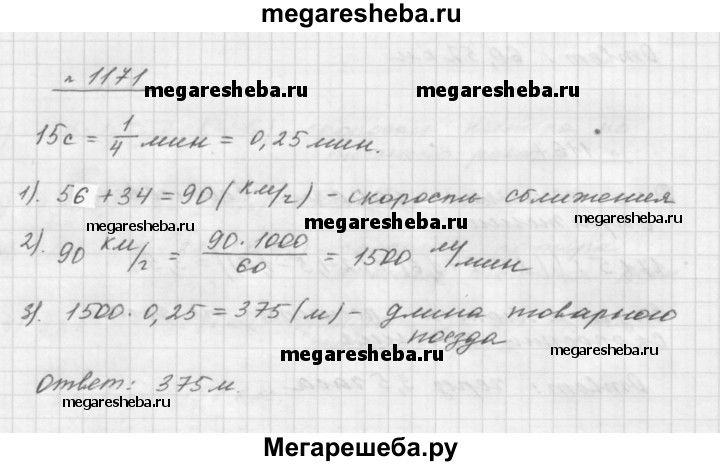 megaresheba.ru
№ 1171
megaresheba.ru megaresheba.ru
15с = 1/4 мин = 0,25 мин.
1). 56 + 34 = 90 (км/г) - скорость сближения
megaresheba.ru megaresheba.ru megaresheba.ru
2). 90 км/г = 90·1000/60 = 1500 м/мин
3). 1500·0,25 = 375 (м) - длина товарного поезда
megaresheba.ru megaresheba.ru
Ответ: 375 м.
megaresheba.ru
Мегарешеба.ру